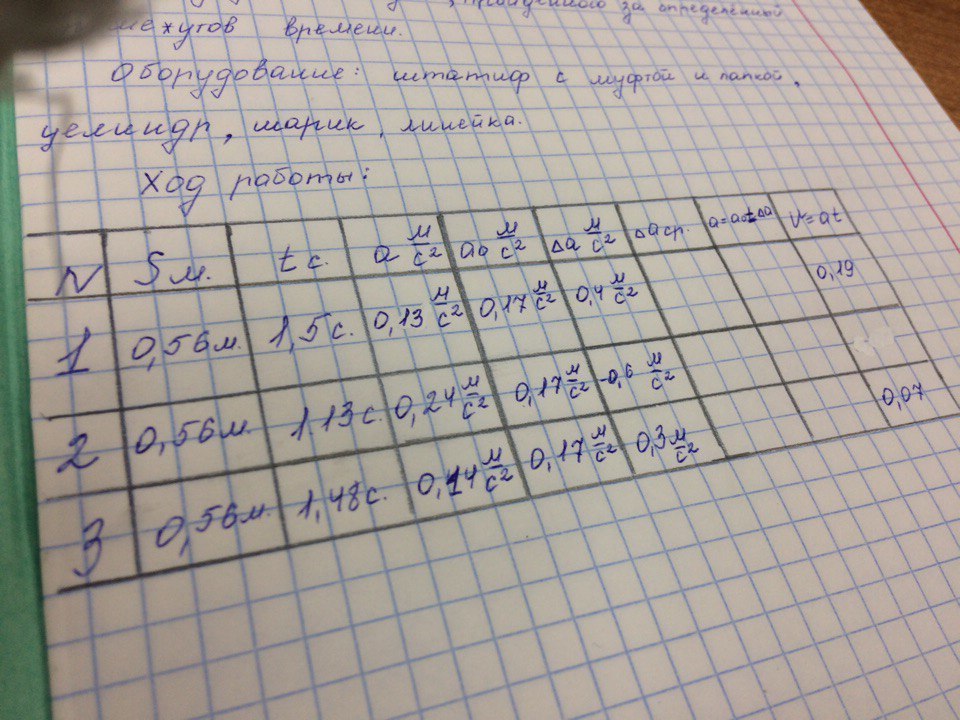 пройденного за определённый
времени.
Оборудование: штатив с муфтой и лапкой,
целиндр, шарик, линейка.
Ход работы:
N S м. t с. a м/с² aо м/с² Δa м/с² Δaср. a=aо±Δa V=at
1 0,56м. 1,5с. 0,13 м/с² 0,17 м/с² 0,4 м/с² 0,19
2 0,56м. 1,13с. 0,24 м/с² 0,17 м/с² -0,6 м/с²
3 0,56м. 1,48с. 0,14 м/с² 0,17 м/с² 0,3 м/с² 0,07